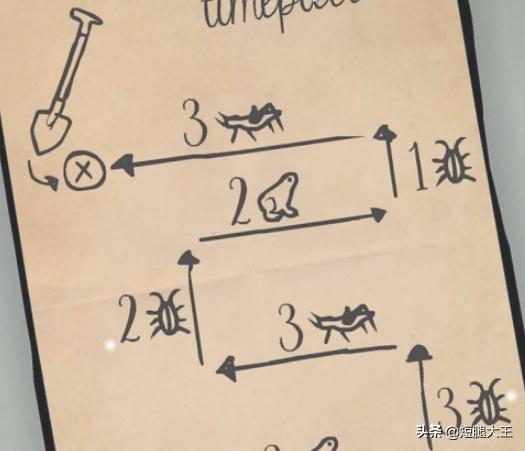 3
X
1
2
2
3
3
头条 @短腿大王